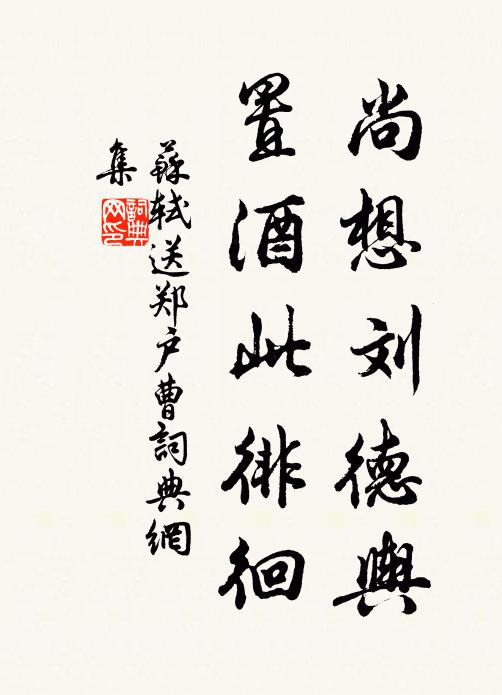 尚想刘德舆
置酒此徘徊
蘇轼送郑户曹詞典網
集
詞典
网印